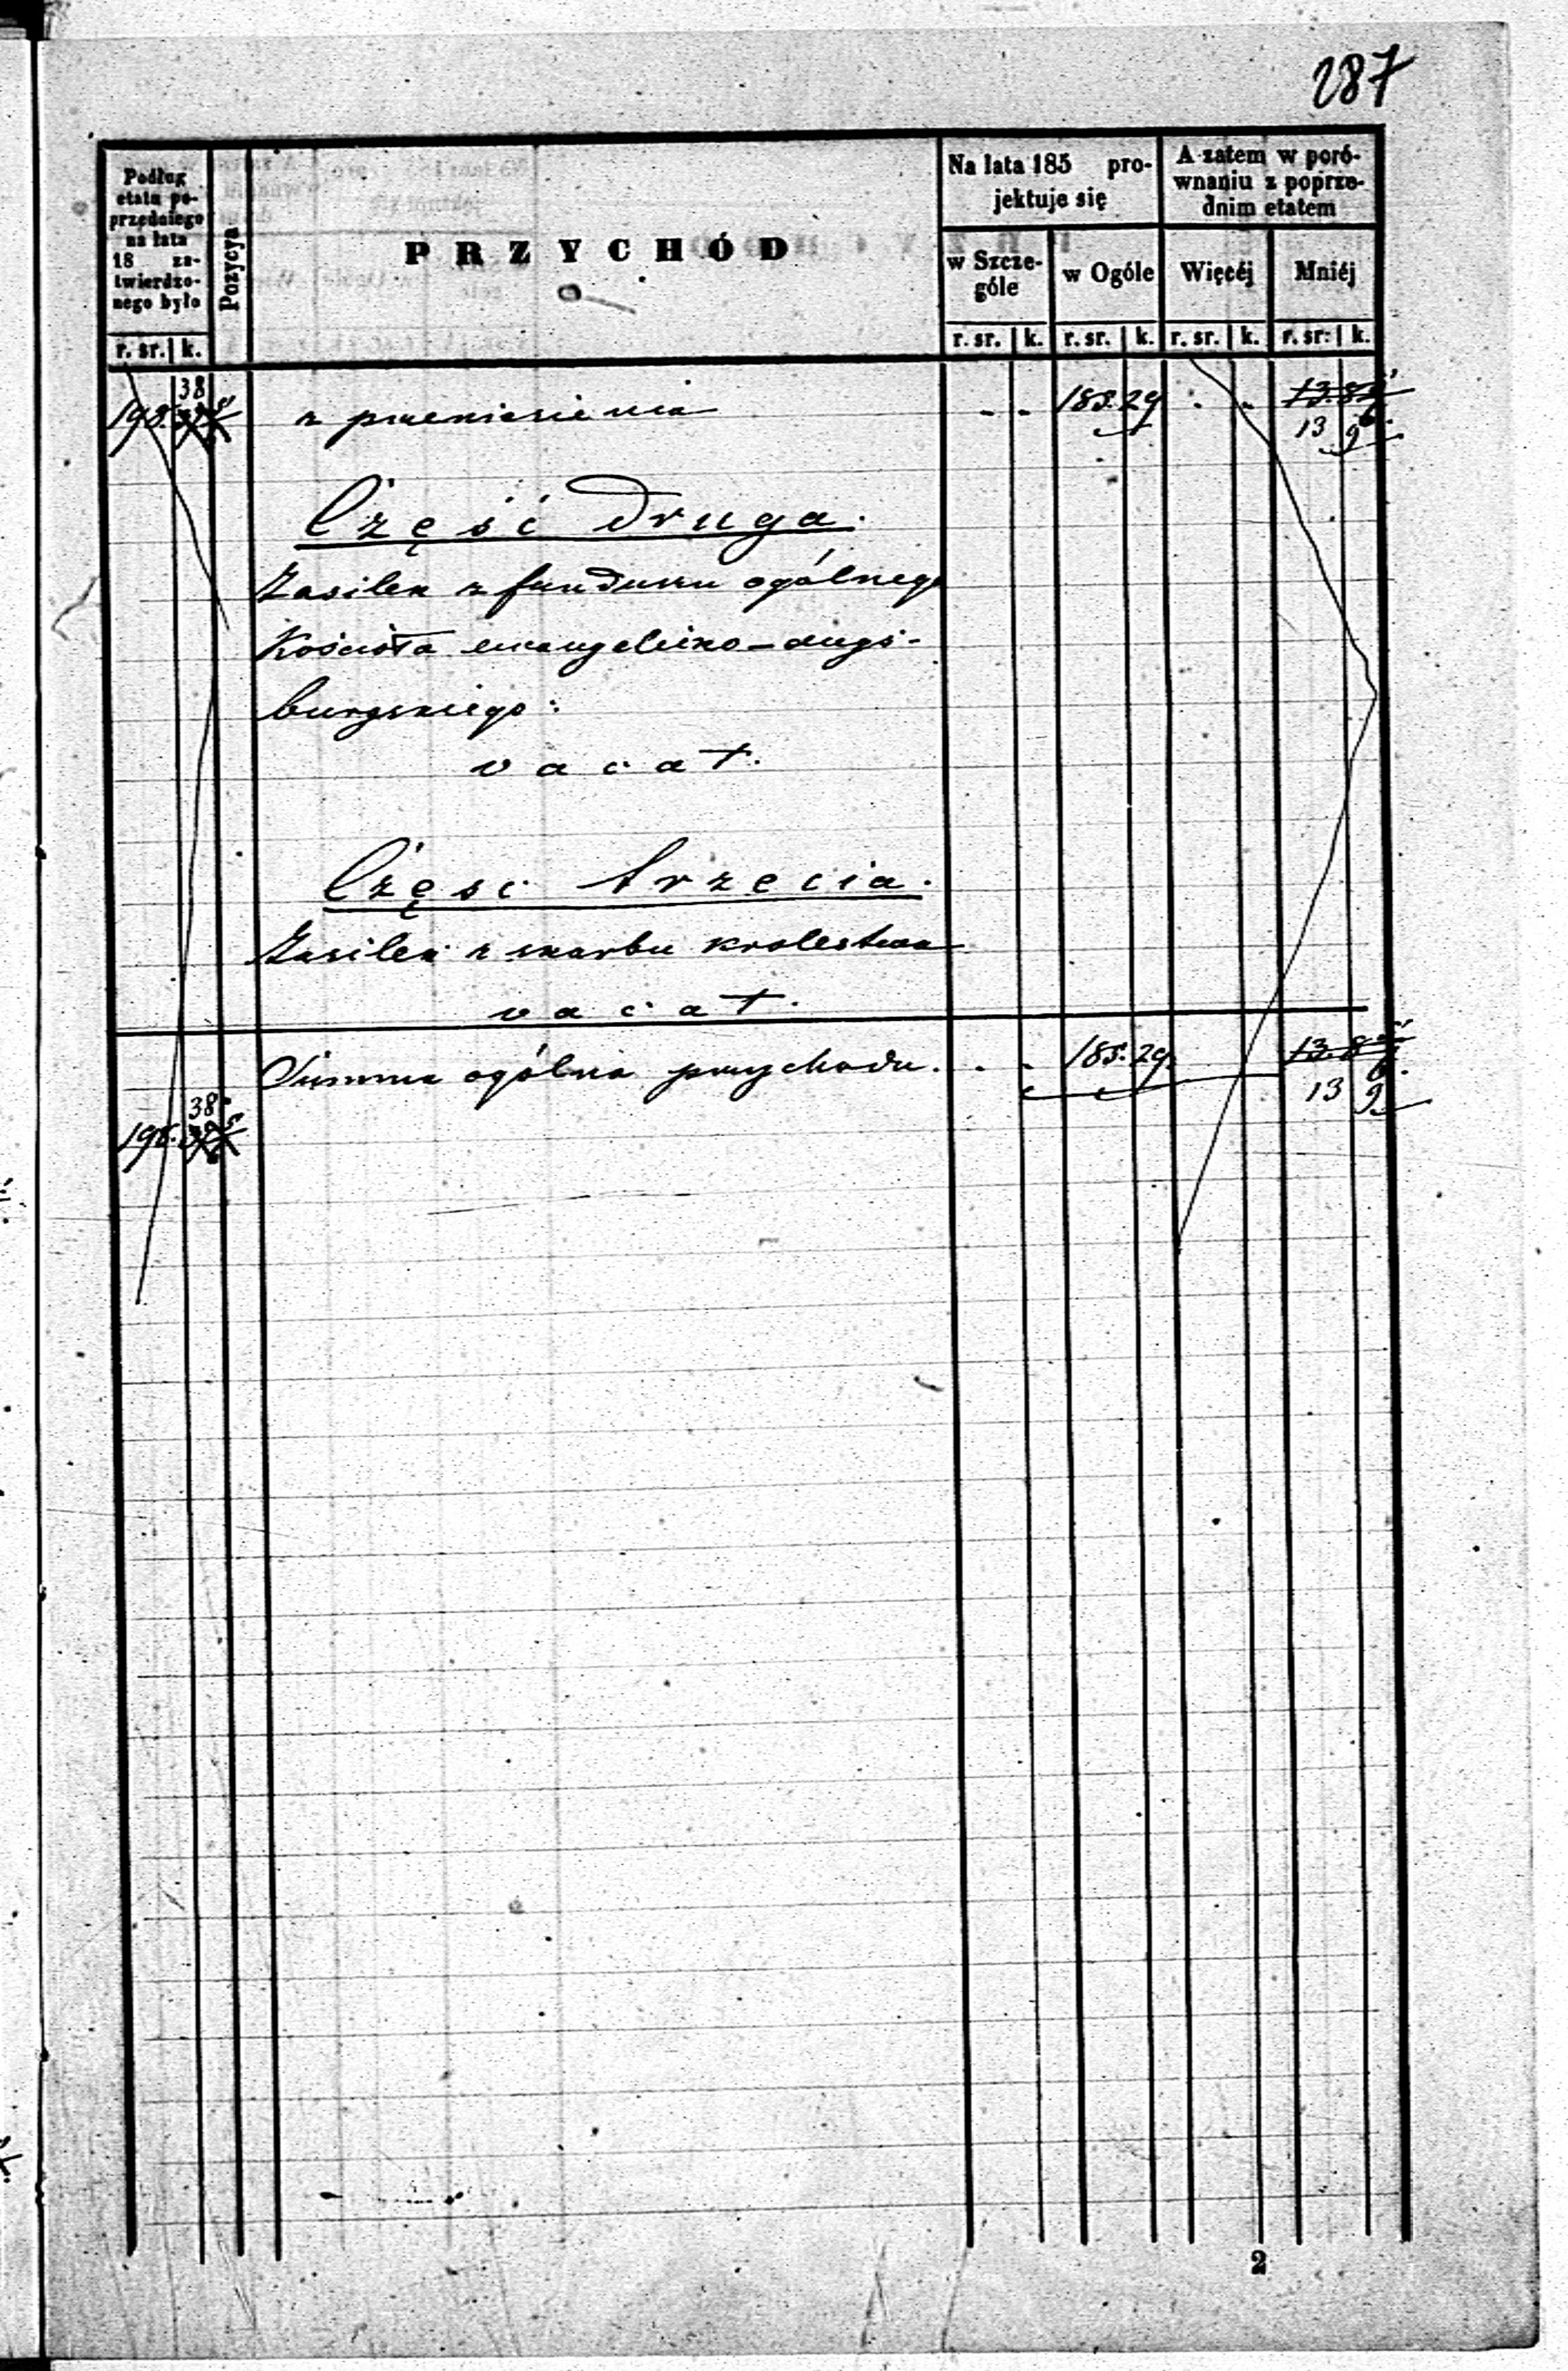 287
Podług etatu poprzedniego na lata 18 zatwierdzonego było
Pozycya
PRZYCHÓD
Na lata 185 projektuje się
A zatem w porównaniu z poprzednim etatem
w Szczególe
w Ogóle
Więcéj
Mniéj
r. sr. k.
r. sr. k. r. sr. k. r. sr. k. r. sr. k.
38
198. z przeniesienia - - 185. 29 . . 13. 8
13 9
Część druga.
Zasiłek z funduszu ogólnego
Kościoła ewangelicko-augs-
burgskiego:
vacat.
Częsc trzecia.
Zasiłek z skarbu krolestwa
vacat.
Summa ogólna przychodu. . . 185. 29. 13. 8
13 9
38
198.
2